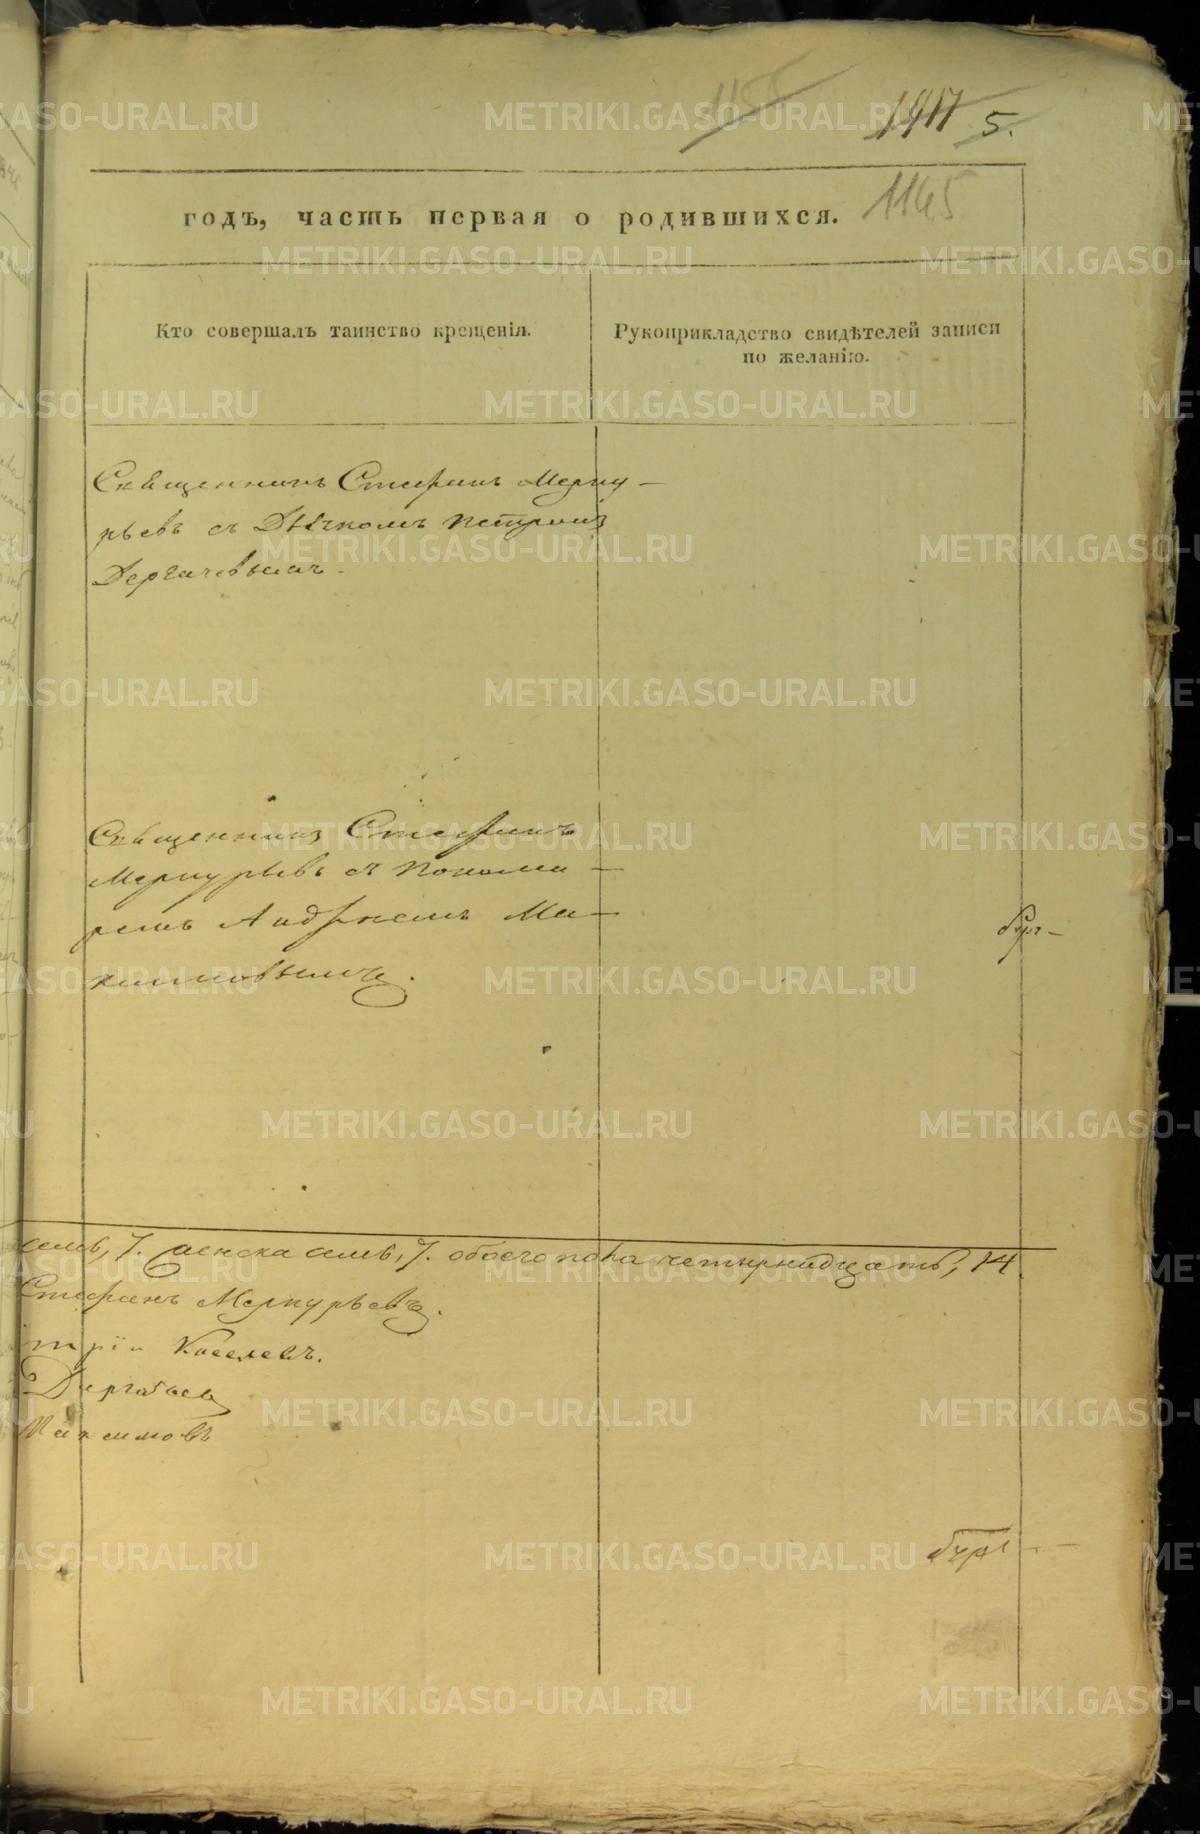 1155
1911 5.
1145
годъ, часть первая о родившихся.
Кто совершалъ таинство крещенія.
Рукоприкладство свидѣтелей записи
по желанію.
Священникъ Стефанъ Мерку-
рьевъ съ Дьячкомъ Петромъ
Дергачевымъ.
Священникъ Стефанъ
Меркурьевъ съ Понома-
ремъ Андреемъ Ма-
ксимовымъ.
семь, 7. женска семь, 7. обоего пола четырнадцать, 14.
Стефанъ Меркурьевъ.
трій Киселевъ.
Дергачевъ
Максимовъ
METRIKI.GASO-URAL.RU